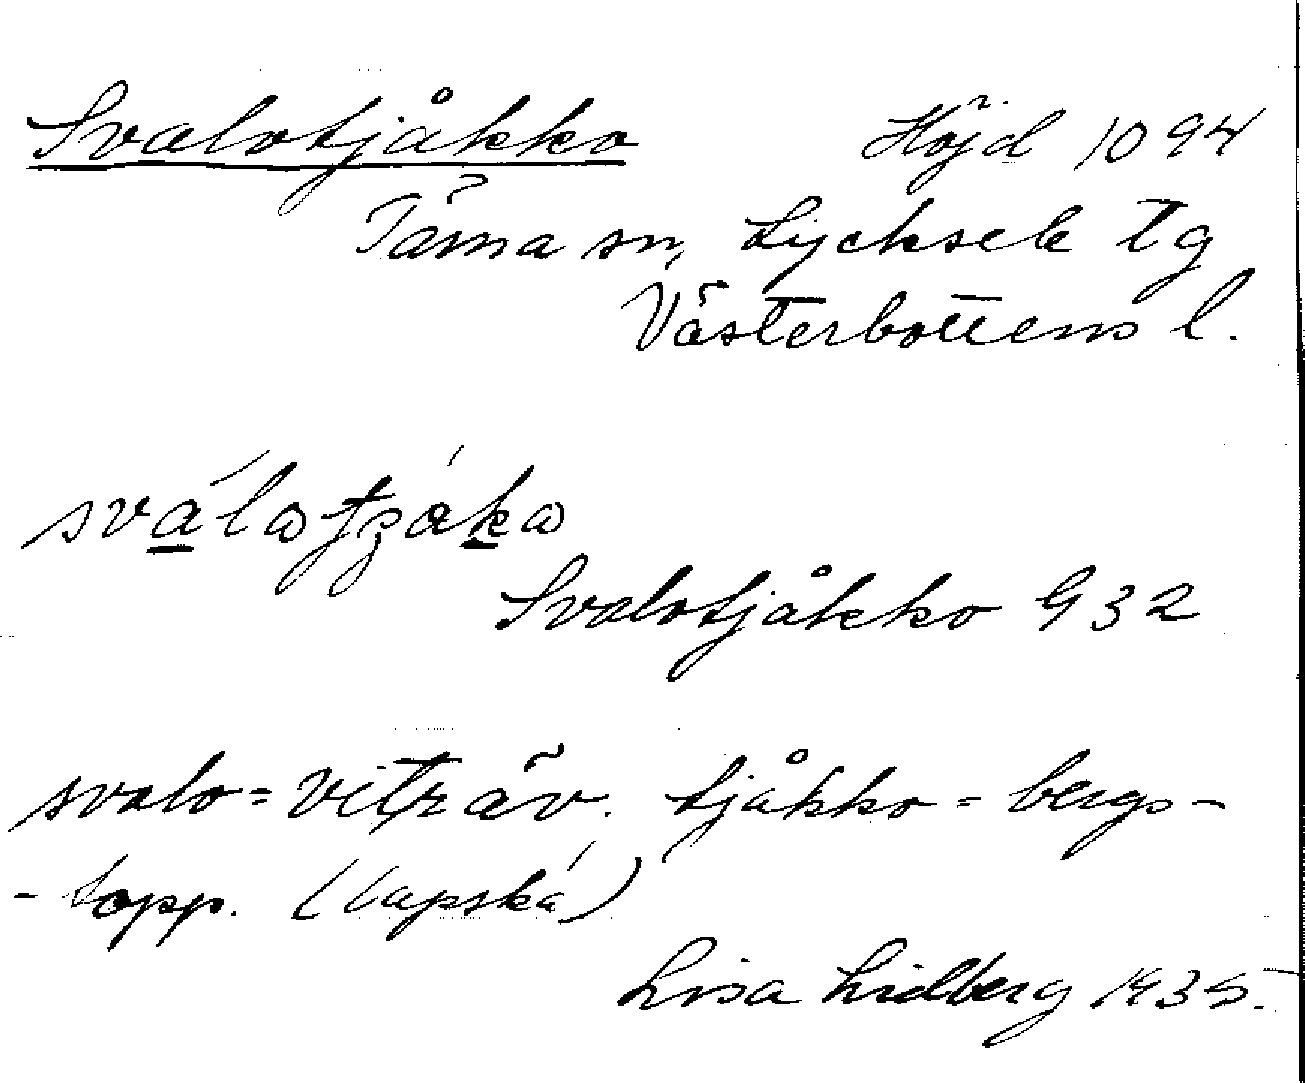 Svalotjåkko Höjd 1094
Tärna sn, Lycksele tg
Västerbottens l.
Svalotjåkko G32
svalo = viträv. tjåkko = bergs-
- topp. (lapska)
Lisa Lidberg 1935.